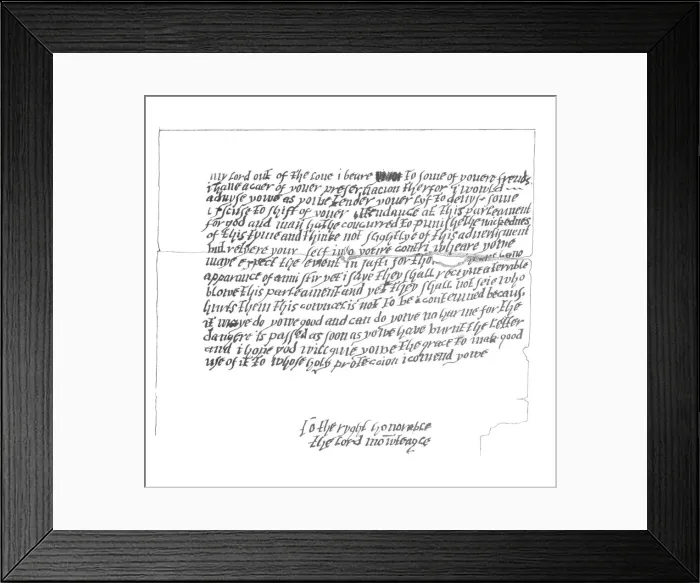 my lord out of the loue i beare To some of youere frends
i haue a caer of youer preseruacion therfor i would
aduyse yowe as yowe tender youer lyf to deuyse some
excuse to shift of youer attendance at this parleament
for god and man hathe concurred to punishe the wickednes
of this tyme and thinke not slightlye of this aduertisment
but retyere youre self into youre contri wheare yowe
maye expect the euent in safti for tho
apparance of anni stir yet i saye they shall receyue a terrible
blowe this parleament and yet they shall not seie who
hurts them This councel is not To be contemned because
it maye do yowe good and can do yowe no harme for the
dangere is passed as soon as yowe have burnt the letter
and i hope god will giue yowe the grace to mak good
use of it To whose holy proteccion i comend yowe
To the ryght honorable
the lord mowteagle